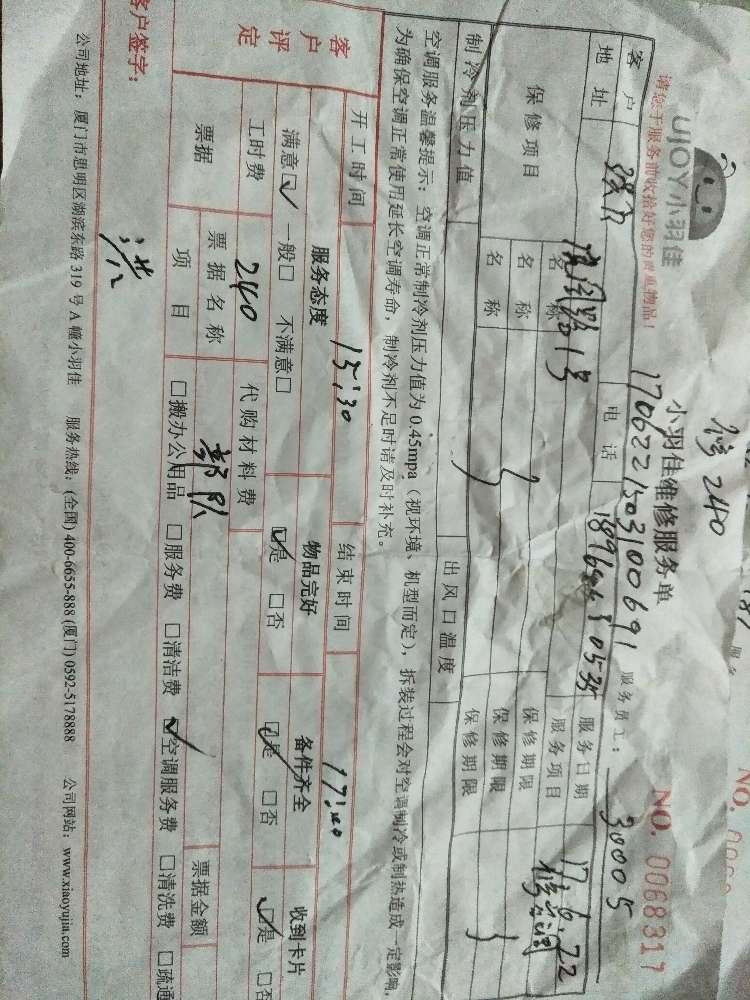 修 240
UJOY小羽佳
小羽佳维修服务单
NO. 0068317
请您于服务前收拾好您的贵重物品!
170622150310069 1
服务员工: 30005
客户
电话
服务日期 17.6.22
地址
服务项目
保修项目
名称
保修期限
名称
保修期限
名称
保修期限
制冷剂压力值
出风口温度
空调服务温馨提示: 空调正常制冷剂压力值为 0.45mpa (视环境、机型而定), 拆装过程会对空调制冷或制热造成一定影响,
为确保空调正常使用延长空调寿命, 制冷剂不足时请及时补充。
开工时间 15:30 结束时间 17:00
客户评定
服务态度 物品完好 备件齐全 收到卡片
满意☑ 一般□ 不满意□ ☑是 □否 ☑是 □否 ☑是 □否
工时费 240 代购材料费
票据 票据名称 票据金额
项目 □搬办公用品 □服务费 □清洁费 ☑空调服务费 □清洗费 □疏通
客户签字:
公司地址: 厦门市思明区湖滨东路 319 号 A 幢小羽佳 服务热线: (全国) 400-6655-888 (厦门) 0592-5178888 公司网站: www.xiaoyujia.com